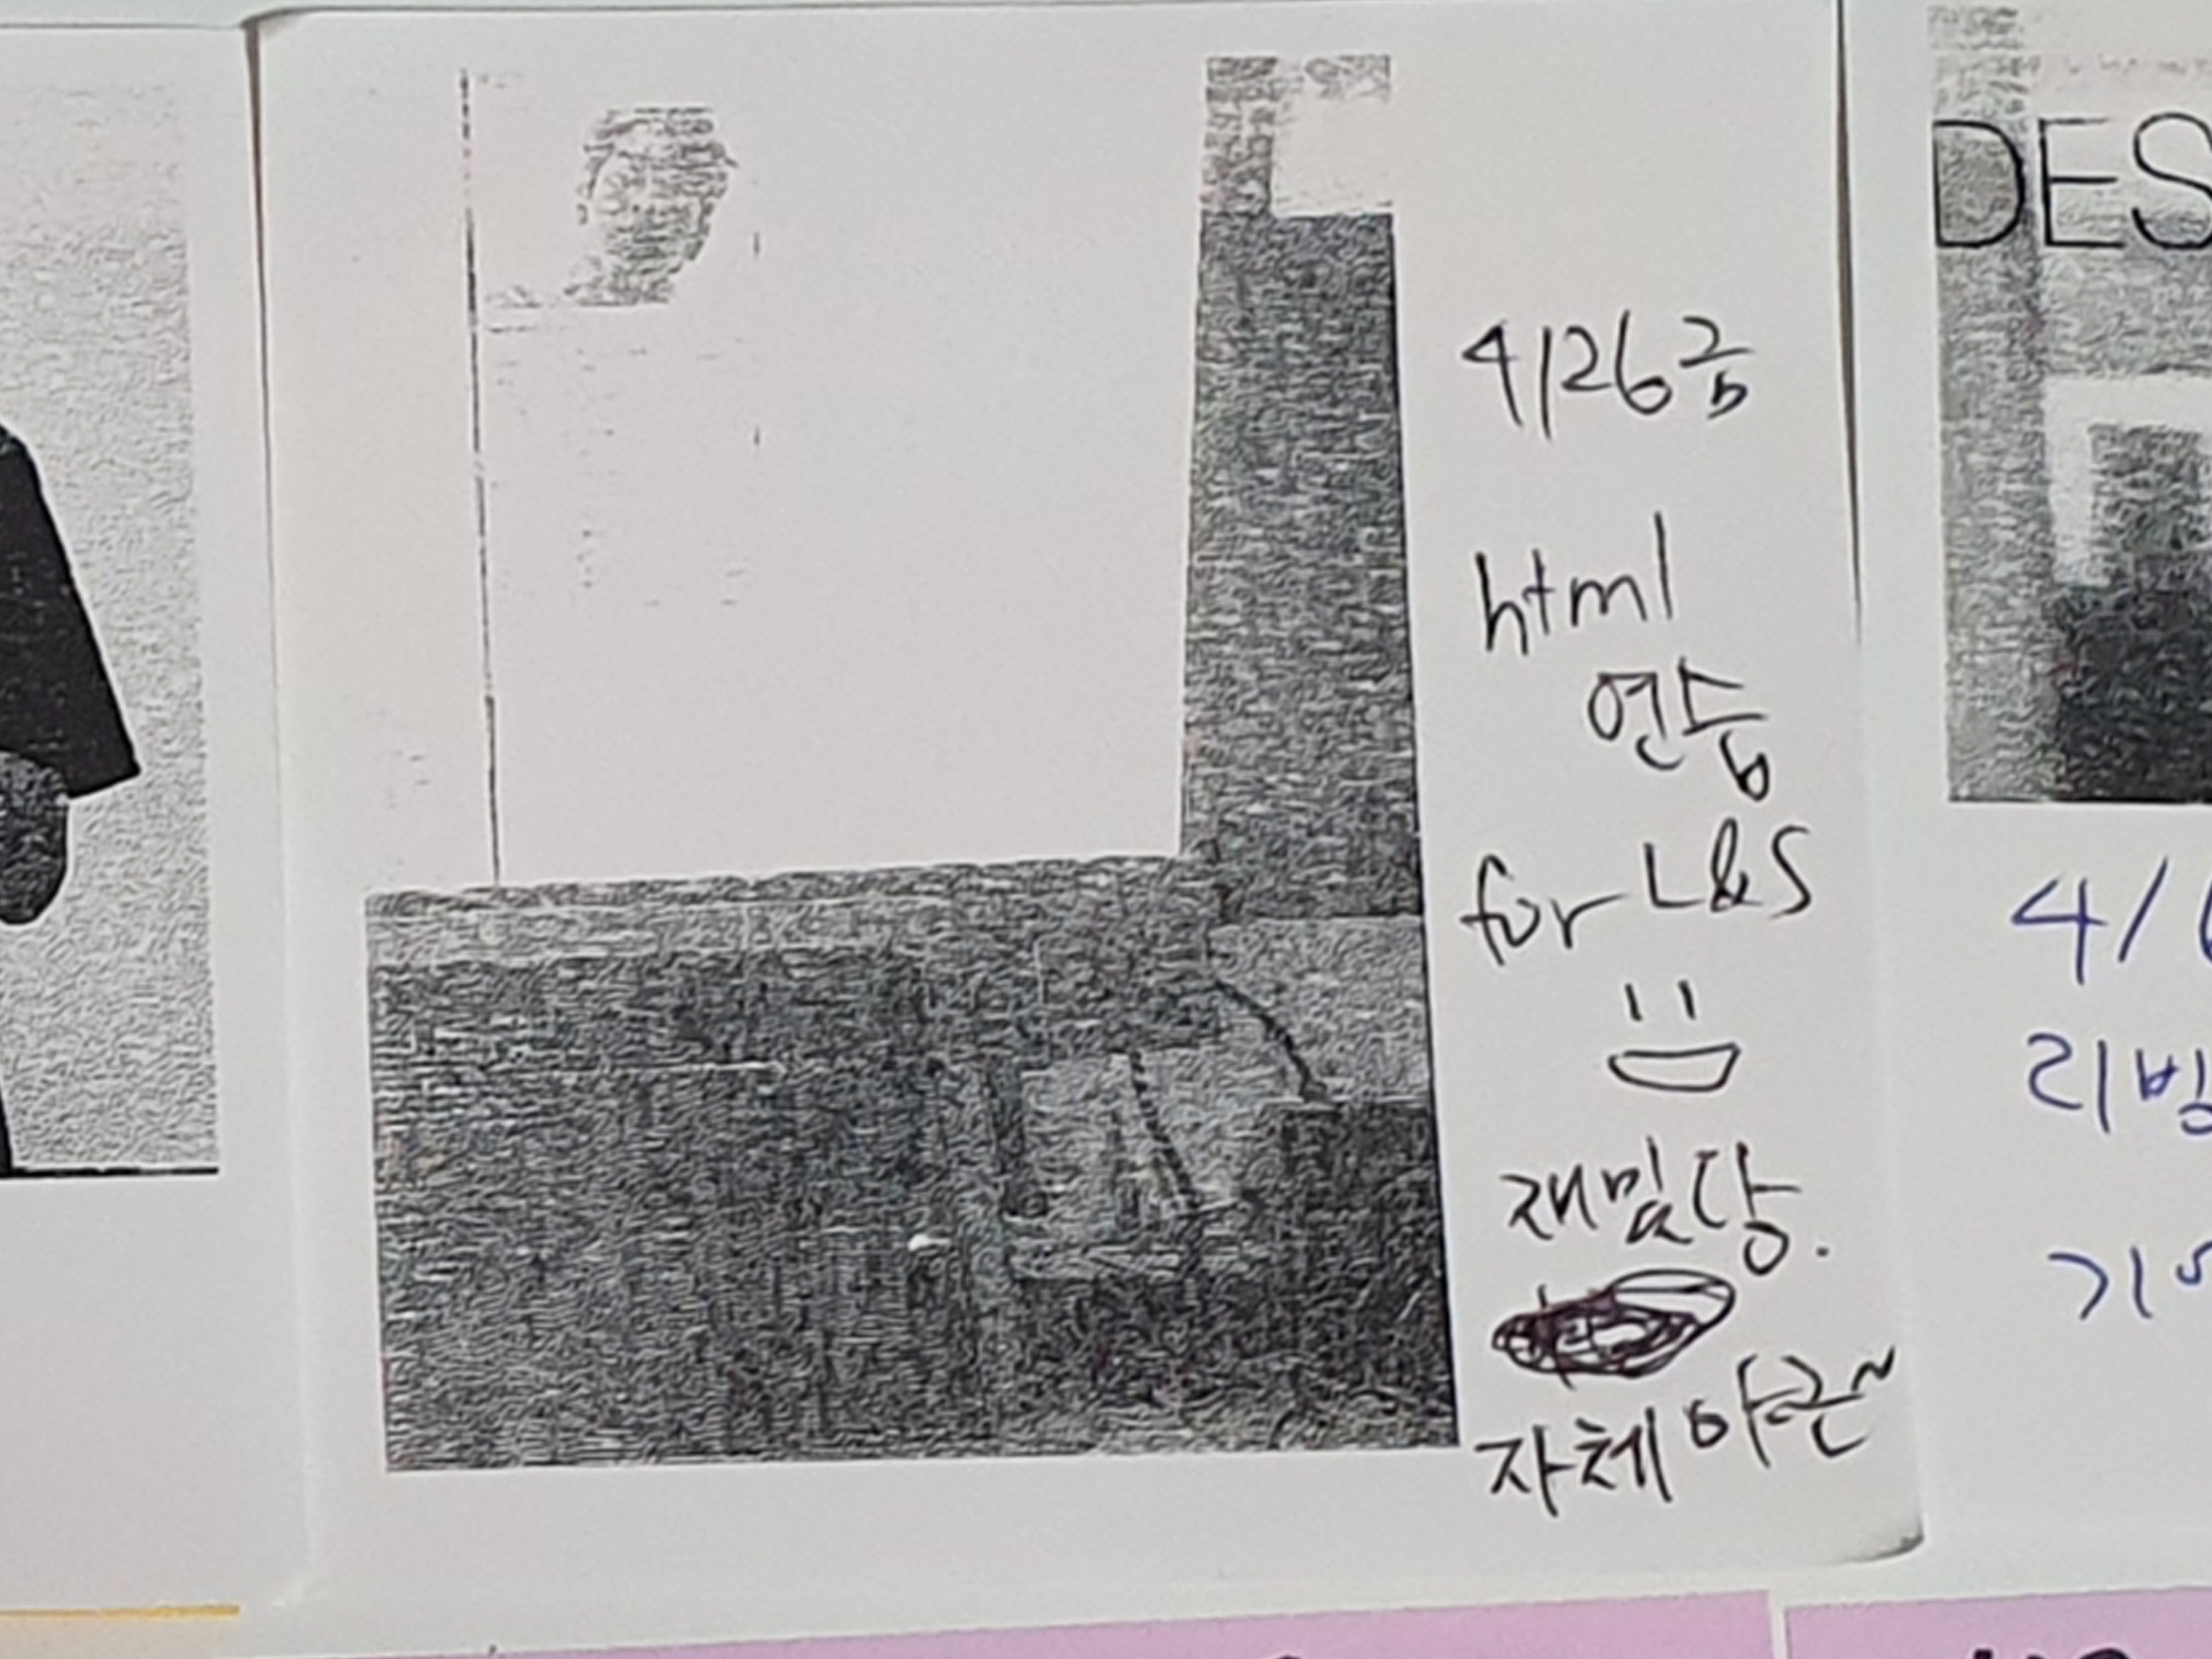 4/26 금
html
연습
for L&S
재밌당.
자체 야근~
DES
4/6
리빙